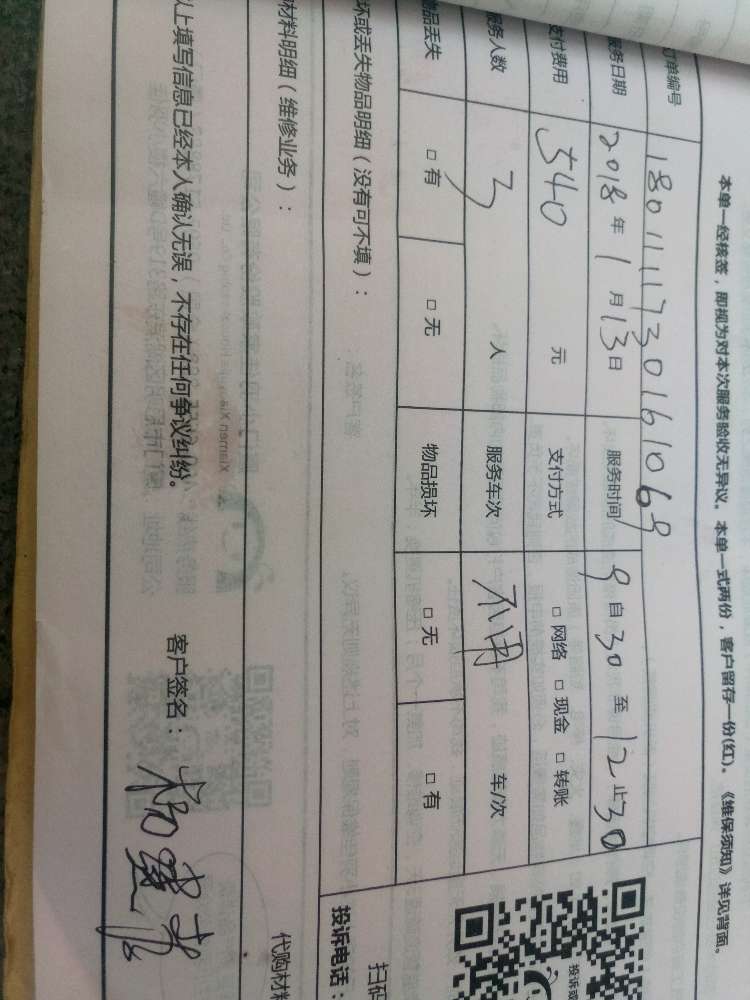 本单一经核签，即视为对本次服务验收无异议。本单一式两份，客户留存一份(红)。《维保须知》详见背面。
订单编号 180111173016106
服务日期 2018年1月13日 服务时间 9自30至12止30
支付费用 540 元 支付方式 □网络 □现金 □转账
服务人数 3 人 服务车次 不用 车/次
物品丢失 □有 □无 物品损坏 □无 □有
坏或丢失物品明细（没有可不填）：
扫码
投诉电话：
材料明细（维修业务）：
代购材料
以上填写信息已经本人确认无误，不存在任何争议纠纷。 客户签名：